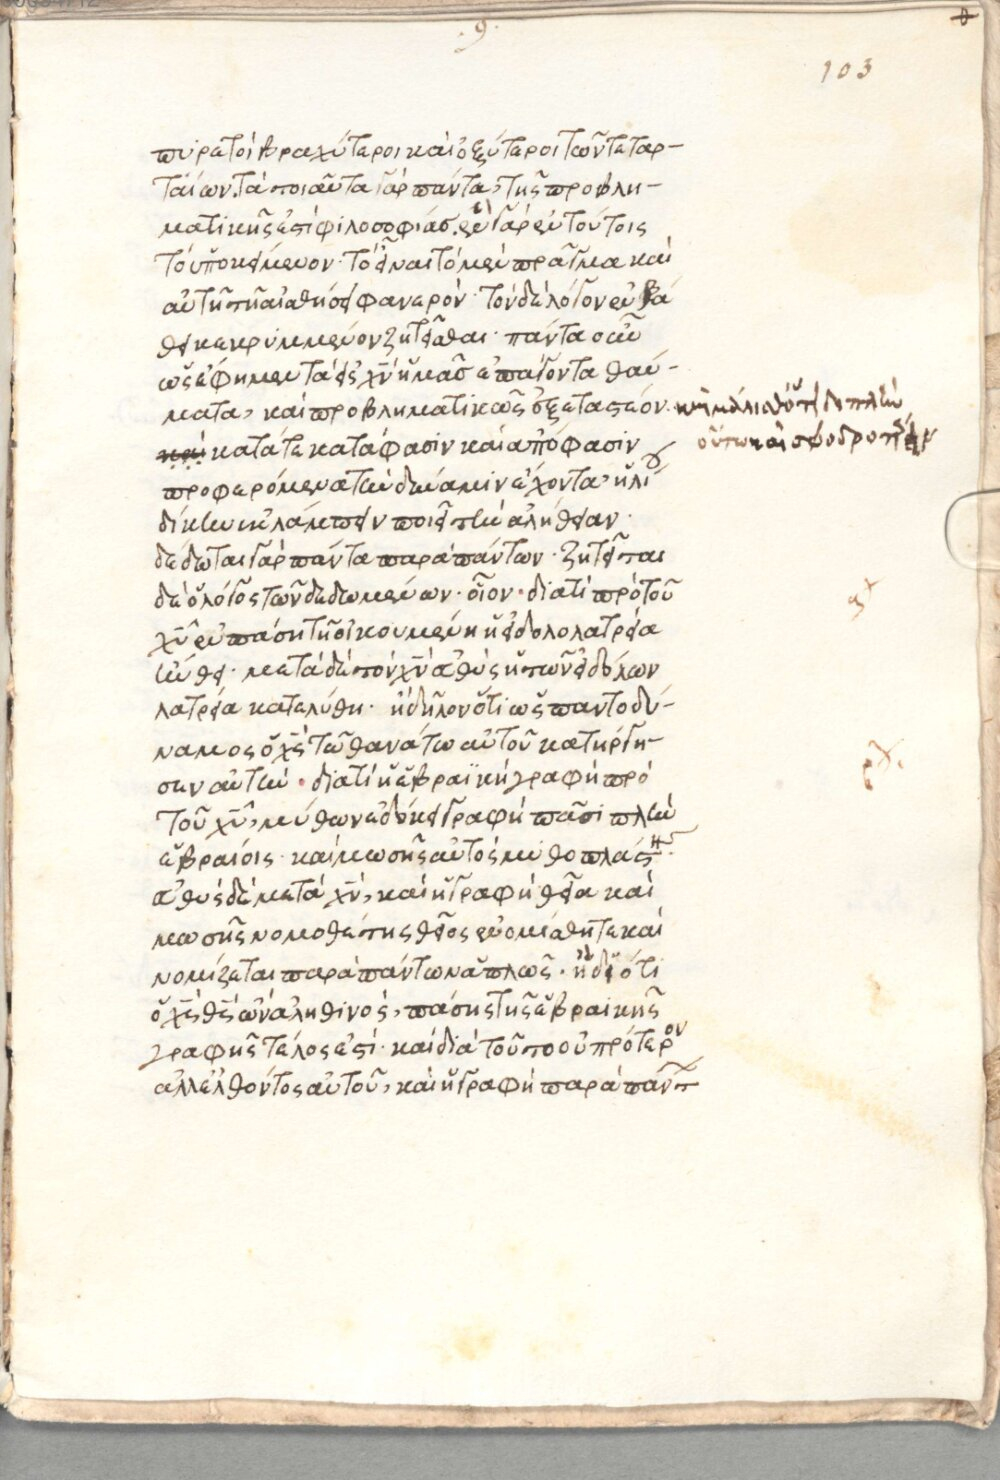 .9.
103
πυρετοὶ βραχύτεροι καὶ ὀξύτεροι τῶν τεταρ-
ταίων. τὰ τοιαῦτα γὰρ πάντα, τῆς προβλη-
ματικῆς ἐστὶ φιλοσοφίας. ἐν γὰρ ἐν τούτοις
τὸ ὑποκείμενον· τὸ εἶναι τὸ μὲν πρᾶγμα καὶ
αὐτῇ τῇ αἰσθήσει φανερόν· τὸν δὲ λόγον ἐν βά
θει κεκρυμμένον ζητεῖσθαι· πάντα
ὡς ἔφημεν τὰ εἰς χν ἡμᾶς ἐπάγοντα θαύ-
ματα, καὶ προβληματικῶς ἐξεταστέον.
καὶ κατά τε κατάφασιν καὶ ἀπόφασιν
προφερόμενα τὴν δύναμιν ἔχοντα, ἡλί
δίκην ἐκλάμπειν ποιεῖ τὴν ἀλήθειαν·
δέδωται γὰρ πάντα παρὰ πάντων· ζητεῖται
δὲ ὁ λόγος τῶν δεδωμένων· οἷον· διατί πρὸ τοῦ
χυ ἐν πάσῃ τῇ οἰκουμένῃ ἡ εἰδολολατρεία
ἤνθει· μετὰ δὲ τὸν χν εὐθὺς ἡ τῶν εἰδώλων
λατρεία κατελύθη· ἢ δῆλον ὅτι ὡς παντοδύ-
ναμος ὁ χς τῷ θανάτῳ αὐτοῦ κατήργη-
σεν αὐτήν· διατί ἡ ἑβραϊκὴ γραφὴ πρὸ
τοῦ χυ, μύθων ἐδόκει γραφὴ πᾶσι πλὴν
ἑβραίοις· καὶ μωσῆς αὐτὸς μυθοπλάστης·
εὐθὺς δὲ μετὰ χν, καὶ ἡ γραφὴ θεῖα καὶ
μωσῆς νομοθέτης θεῖος ἐνομίσθη τε καὶ
νομίζεται παρὰ πάντων ἁπλῶς· ἢ ὅτι
ὁ χς θς ὢν ἀληθινός, πάσης τῆς ἑβραικῆς
γραφῆς τέλος ἐστί· καὶ διὰ τοῦτο οὐ πρότερον
ἀλλ' ἐλθόντος αὐτοῦ, καὶ ἡ γραφὴ παρὰ παντ